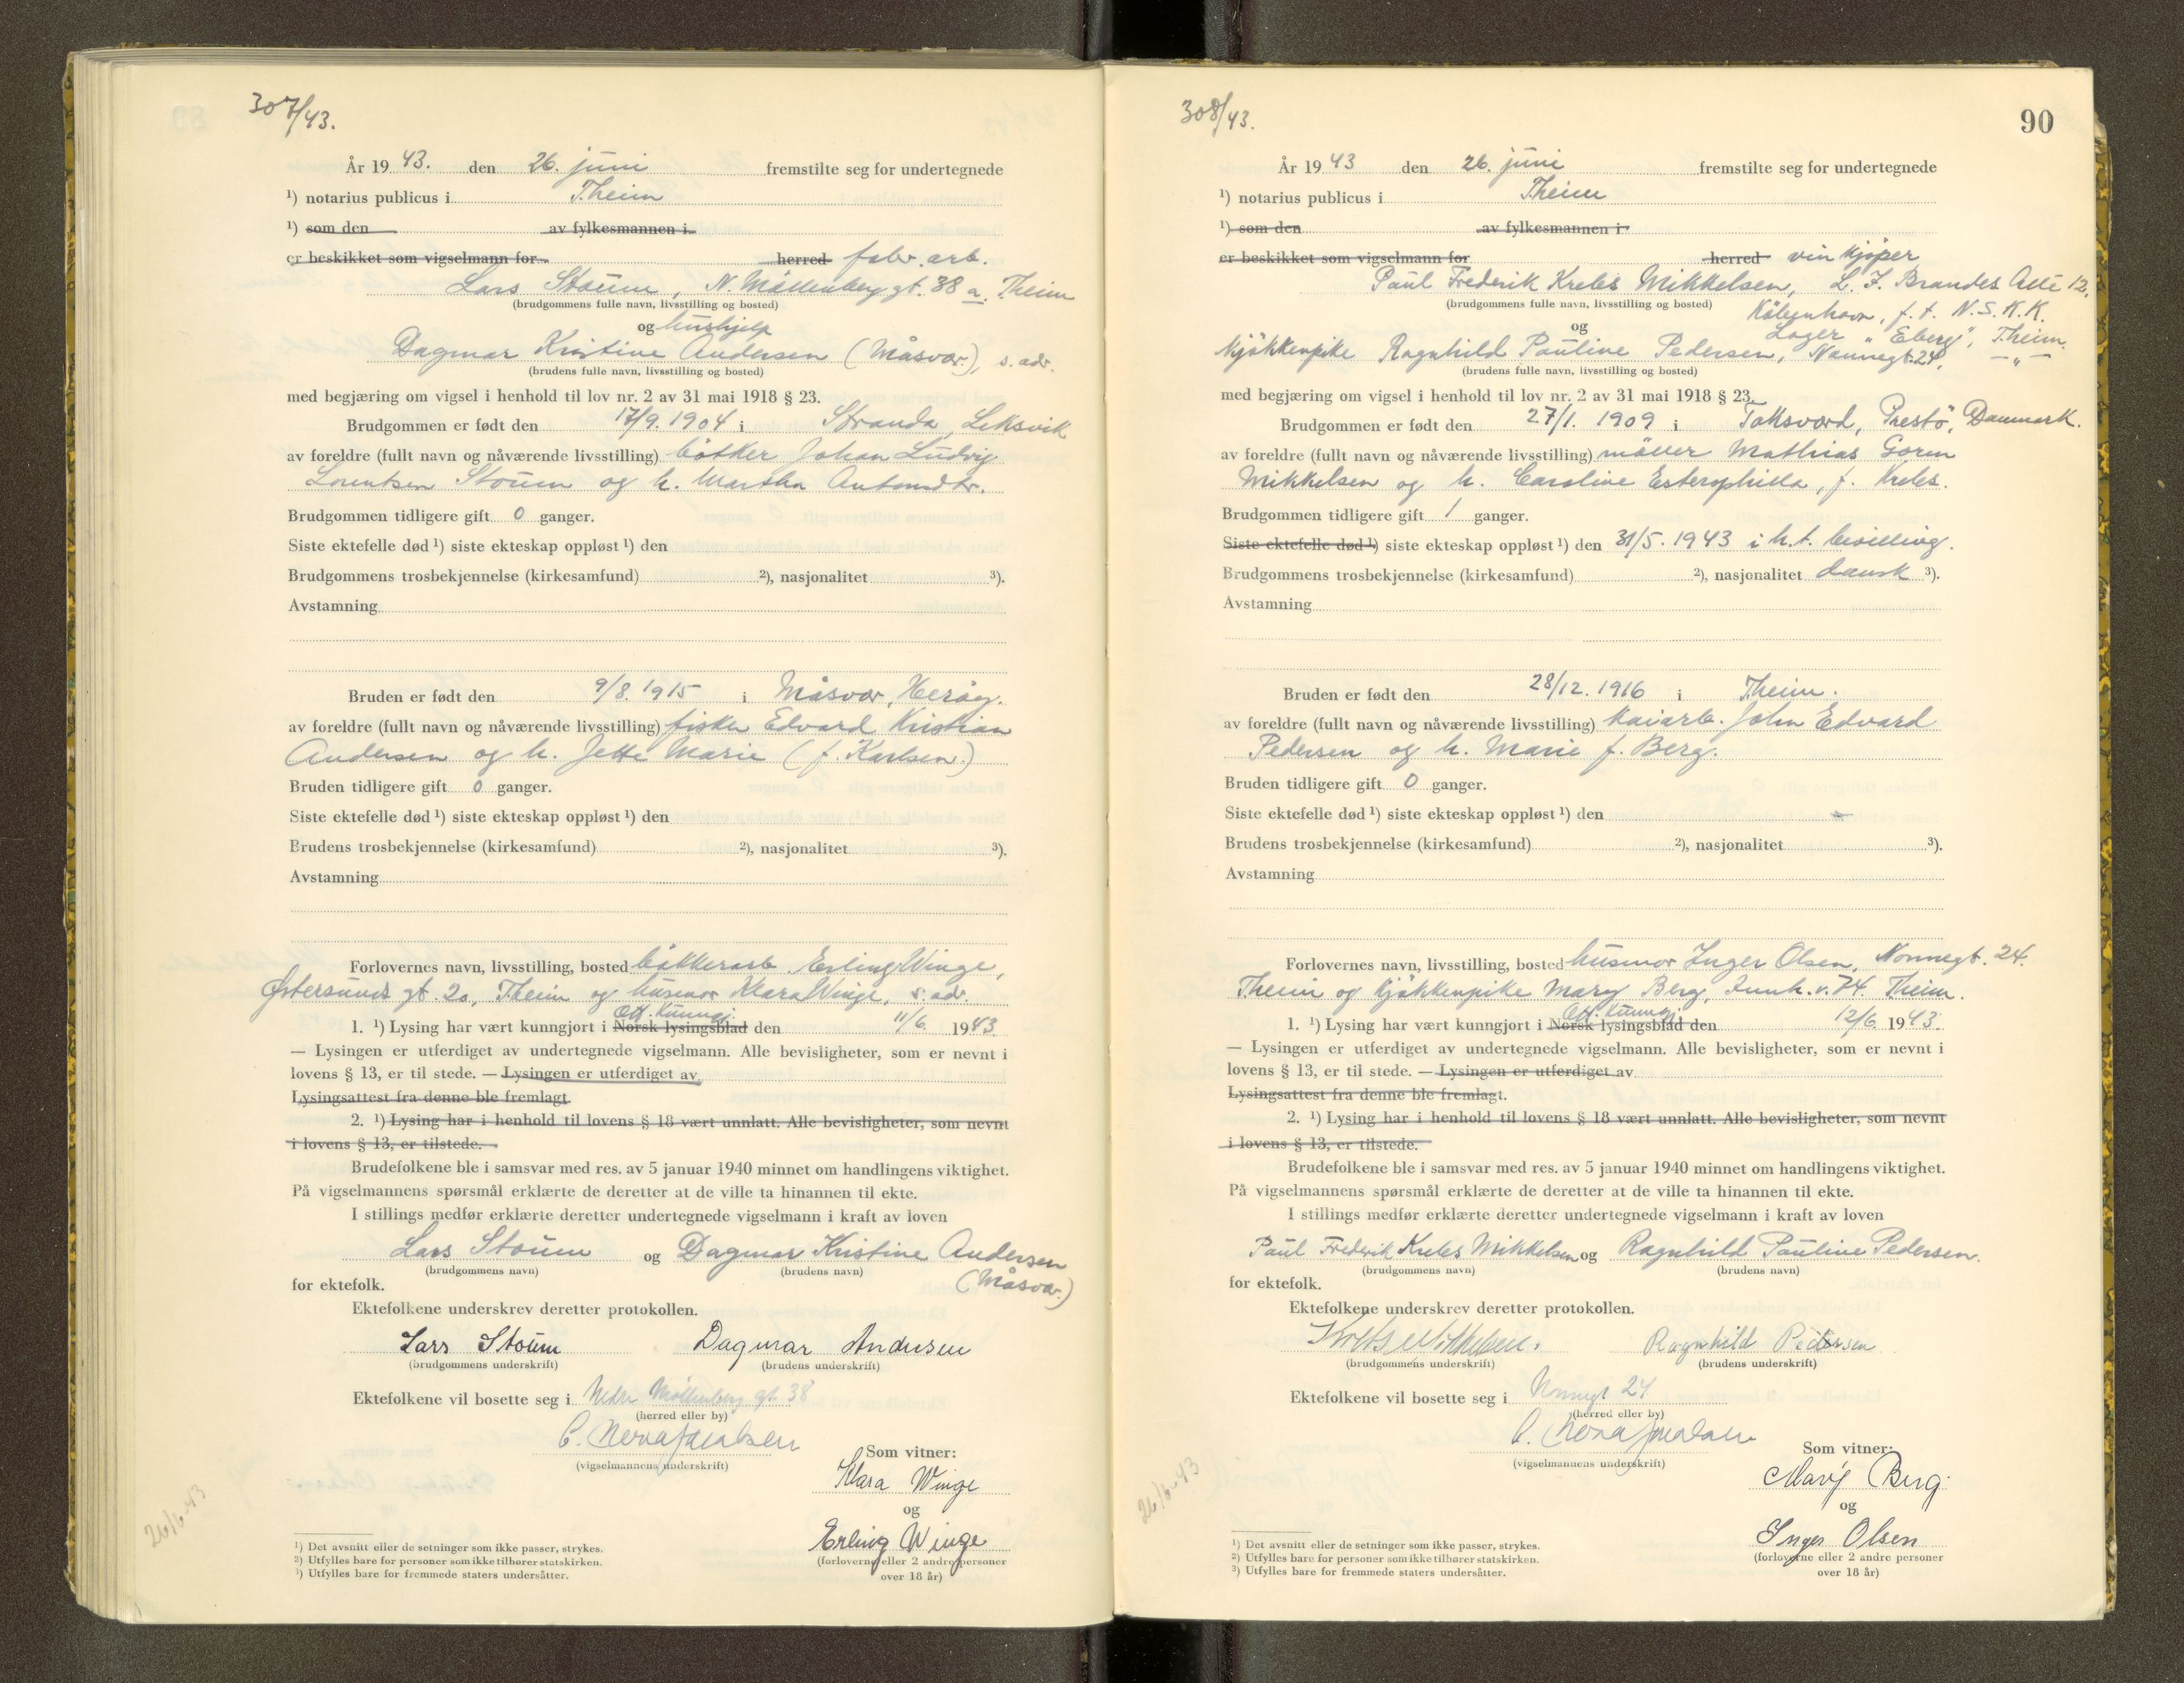 307/43.
År 19 43. den 26. juni fremstilte seg for undertegnede
¹) notarius publicus i Theim
¹) som den av fylkesmannen i
er beskikket som vigselmann for herred fabr. arb.
Lars Stoum, N. Möllenberg gt. 38 a. Theim
(brudgommens fulle navn, livsstilling og bosted)
og hushjelp
Dagmar Kristine Andersen (Måsvær), s. adr.
(brudens fulle navn, livsstilling og bosted)
med begjæring om vigsel i henhold til lov nr. 2 av 31 mai 1918 § 23.
Brudgommen er født den 17/9. 1904 i Stranda, Leksvik
av foreldre (fullt navn og nåværende livsstilling) bötker Johan Ludvig
Lorentsen Stoum og h. Martha Antonsdtr.
Brudgommen tidligere gift 0 ganger.
Siste ektefelle død ¹) siste ekteskap oppløst ¹) den
Brudgommens trosbekjennelse (kirkesamfund) ²), nasjonalitet ³).
Avstamning
Bruden er født den 9/8. 1915 i Måsvær, Herøy.
av foreldre (fullt navn og nåværende livsstilling) fisker Edvard Kristian
Andersen og h. Jette Marie (f. Karlsen.)
Bruden tidligere gift 0 ganger.
Siste ektefelle død ¹) siste ekteskap oppløst ¹) den
Brudens trosbekjennelse (kirkesamfund) ²), nasjonalitet ³).
Avstamning
Forlovernes navn, livsstilling, bosted bökkerarb. Erling Winge,
Østersunds gt. 20, Theim og husmor Klara Winge, s. adr.
Off. kunngj.
1. ¹) Lysing har vært kunngjort i Norsk lysingsblad den 11/6. 1943.
— Lysingen er utferdiget av undertegnede vigselmann. Alle bevisligheter, som er nevnt i
lovens § 13, er til stede. — Lysingen er utferdiget av
Lysingsattest fra denne ble fremlagt.
2. ¹) Lysing har i henhold til lovens § 18 vært unnlatt. Alle bevisligheter, som nevnt
i lovens § 13, er tilstede.
Brudefolkene ble i samsvar med res. av 5 januar 1940 minnet om handlingens viktighet.
På vigselmannens spørsmål erklærte de deretter at de ville ta hinannen til ekte.
I stillings medfør erklærte deretter undertegnede vigselmann i kraft av loven
Lars Stoum og Dagmar Kristine Andersen
(brudgommens navn) (brudens navn) (Måsvær.)
for ektefolk.
Ektefolkene underskrev deretter protokollen.
Lars Stoum Dagmar Andersen
(brudgommens underskrift) (brudens underskrift)
Ektefolkene vil bosette seg i Nedre Möllenberg gt. 38
(herred eller by)
(vigselmannens underskrift)
Som vitner:
Klara Winge
og
Erling Winge
(forloverne eller 2 andre personer
over 18 år)
26/6-43
¹) Det avsnitt eller de setninger som ikke passer, strykes.
²) Utfylles bare for personer som ikke tilhører statskirken.
³) Utfylles bare for fremmede staters undersåtter.
308/43.
90
År 19 43 den 26. juni fremstilte seg for undertegnede
¹) notarius publicus i Theim
¹) som den av fylkesmannen i
er beskikket som vigselmann for herred vinkjøper
Paul Frederik Krebs Mikkelsen, L. I. Brandes Alle 12,
(brudgommens fulle navn, livsstilling og bosted) København, f. t. N.S.K.K.
og Lager "Eberg", Theim.
Kjökkenpike Ragnhild Pauline Pedersen, Nonnegt. 24, —"—
(brudens fulle navn, livsstilling og bosted)
med begjæring om vigsel i henhold til lov nr. 2 av 31 mai 1918 § 23.
Brudgommen er født den 27/1. 1909 i Toksværd, Prestö, Danmark.
av foreldre (fullt navn og nåværende livsstilling) möller Mathias Gorm
Mikkelsen og h. Caroline Esterophilla, f. Krebs.
Brudgommen tidligere gift 1 ganger.
Siste ektefelle død ¹) siste ekteskap oppløst ¹) den 31/5. 1943 i h.t. bevilling.
Brudgommens trosbekjennelse (kirkesamfund) ²), nasjonalitet dansk ³).
Avstamning
Bruden er født den 28/12. 1916 i Theim.
av foreldre (fullt navn og nåværende livsstilling) kaiarb. John Edvard
Pedersen og h. Marie f. Berg.
Bruden tidligere gift 0 ganger.
Siste ektefelle død ¹) siste ekteskap oppløst ¹) den
Brudens trosbekjennelse (kirkesamfund) ²), nasjonalitet ³).
Avstamning
Forlovernes navn, livsstilling, bosted husmor Inger Olsen, Nonnegt. 24.
Theim og kjökkenpike Mary Berg, Innh.v. 74. Theim.
Off. kunngj.
1. ¹) Lysing har vært kunngjort i Norsk lysingsblad den 12/6 1943.
— Lysingen er utferdiget av undertegnede vigselmann. Alle bevisligheter, som er nevnt i
lovens § 13, er til stede. — Lysingen er utferdiget av
Lysingsattest fra denne ble fremlagt.
2. ¹) Lysing har i henhold til lovens § 18 vært unnlatt. Alle bevisligheter, som nevnt
i lovens § 13, er tilstede.
Brudefolkene ble i samsvar med res. av 5 januar 1940 minnet om handlingens viktighet.
På vigselmannens spørsmål erklærte de deretter at de ville ta hinannen til ekte.
I stillings medfør erklærte deretter undertegnede vigselmann i kraft av loven
Paul Frederik Krebs Mikkelsen og Ragnhild Pauline Pedersen.
(brudgommens navn) (brudens navn)
for ektefolk.
Ektefolkene underskrev deretter protokollen.
Krebs Mikkelsen. Ragnhild Pedersen
(brudgommens underskrift) (brudens underskrift)
Ektefolkene vil bosette seg i Nonnegt 24
(herred eller by)
(vigselmannens underskrift)
Som vitner:
Mary Berg.
og
Inger Olsen
(forloverne eller 2 andre personer
over 18 år)
26/6-43
¹) Det avsnitt eller de setninger som ikke passer, strykes.
²) Utfylles bare for personer som ikke tilhører statskirken.
³) Utfylles bare for fremmede staters undersåtter.